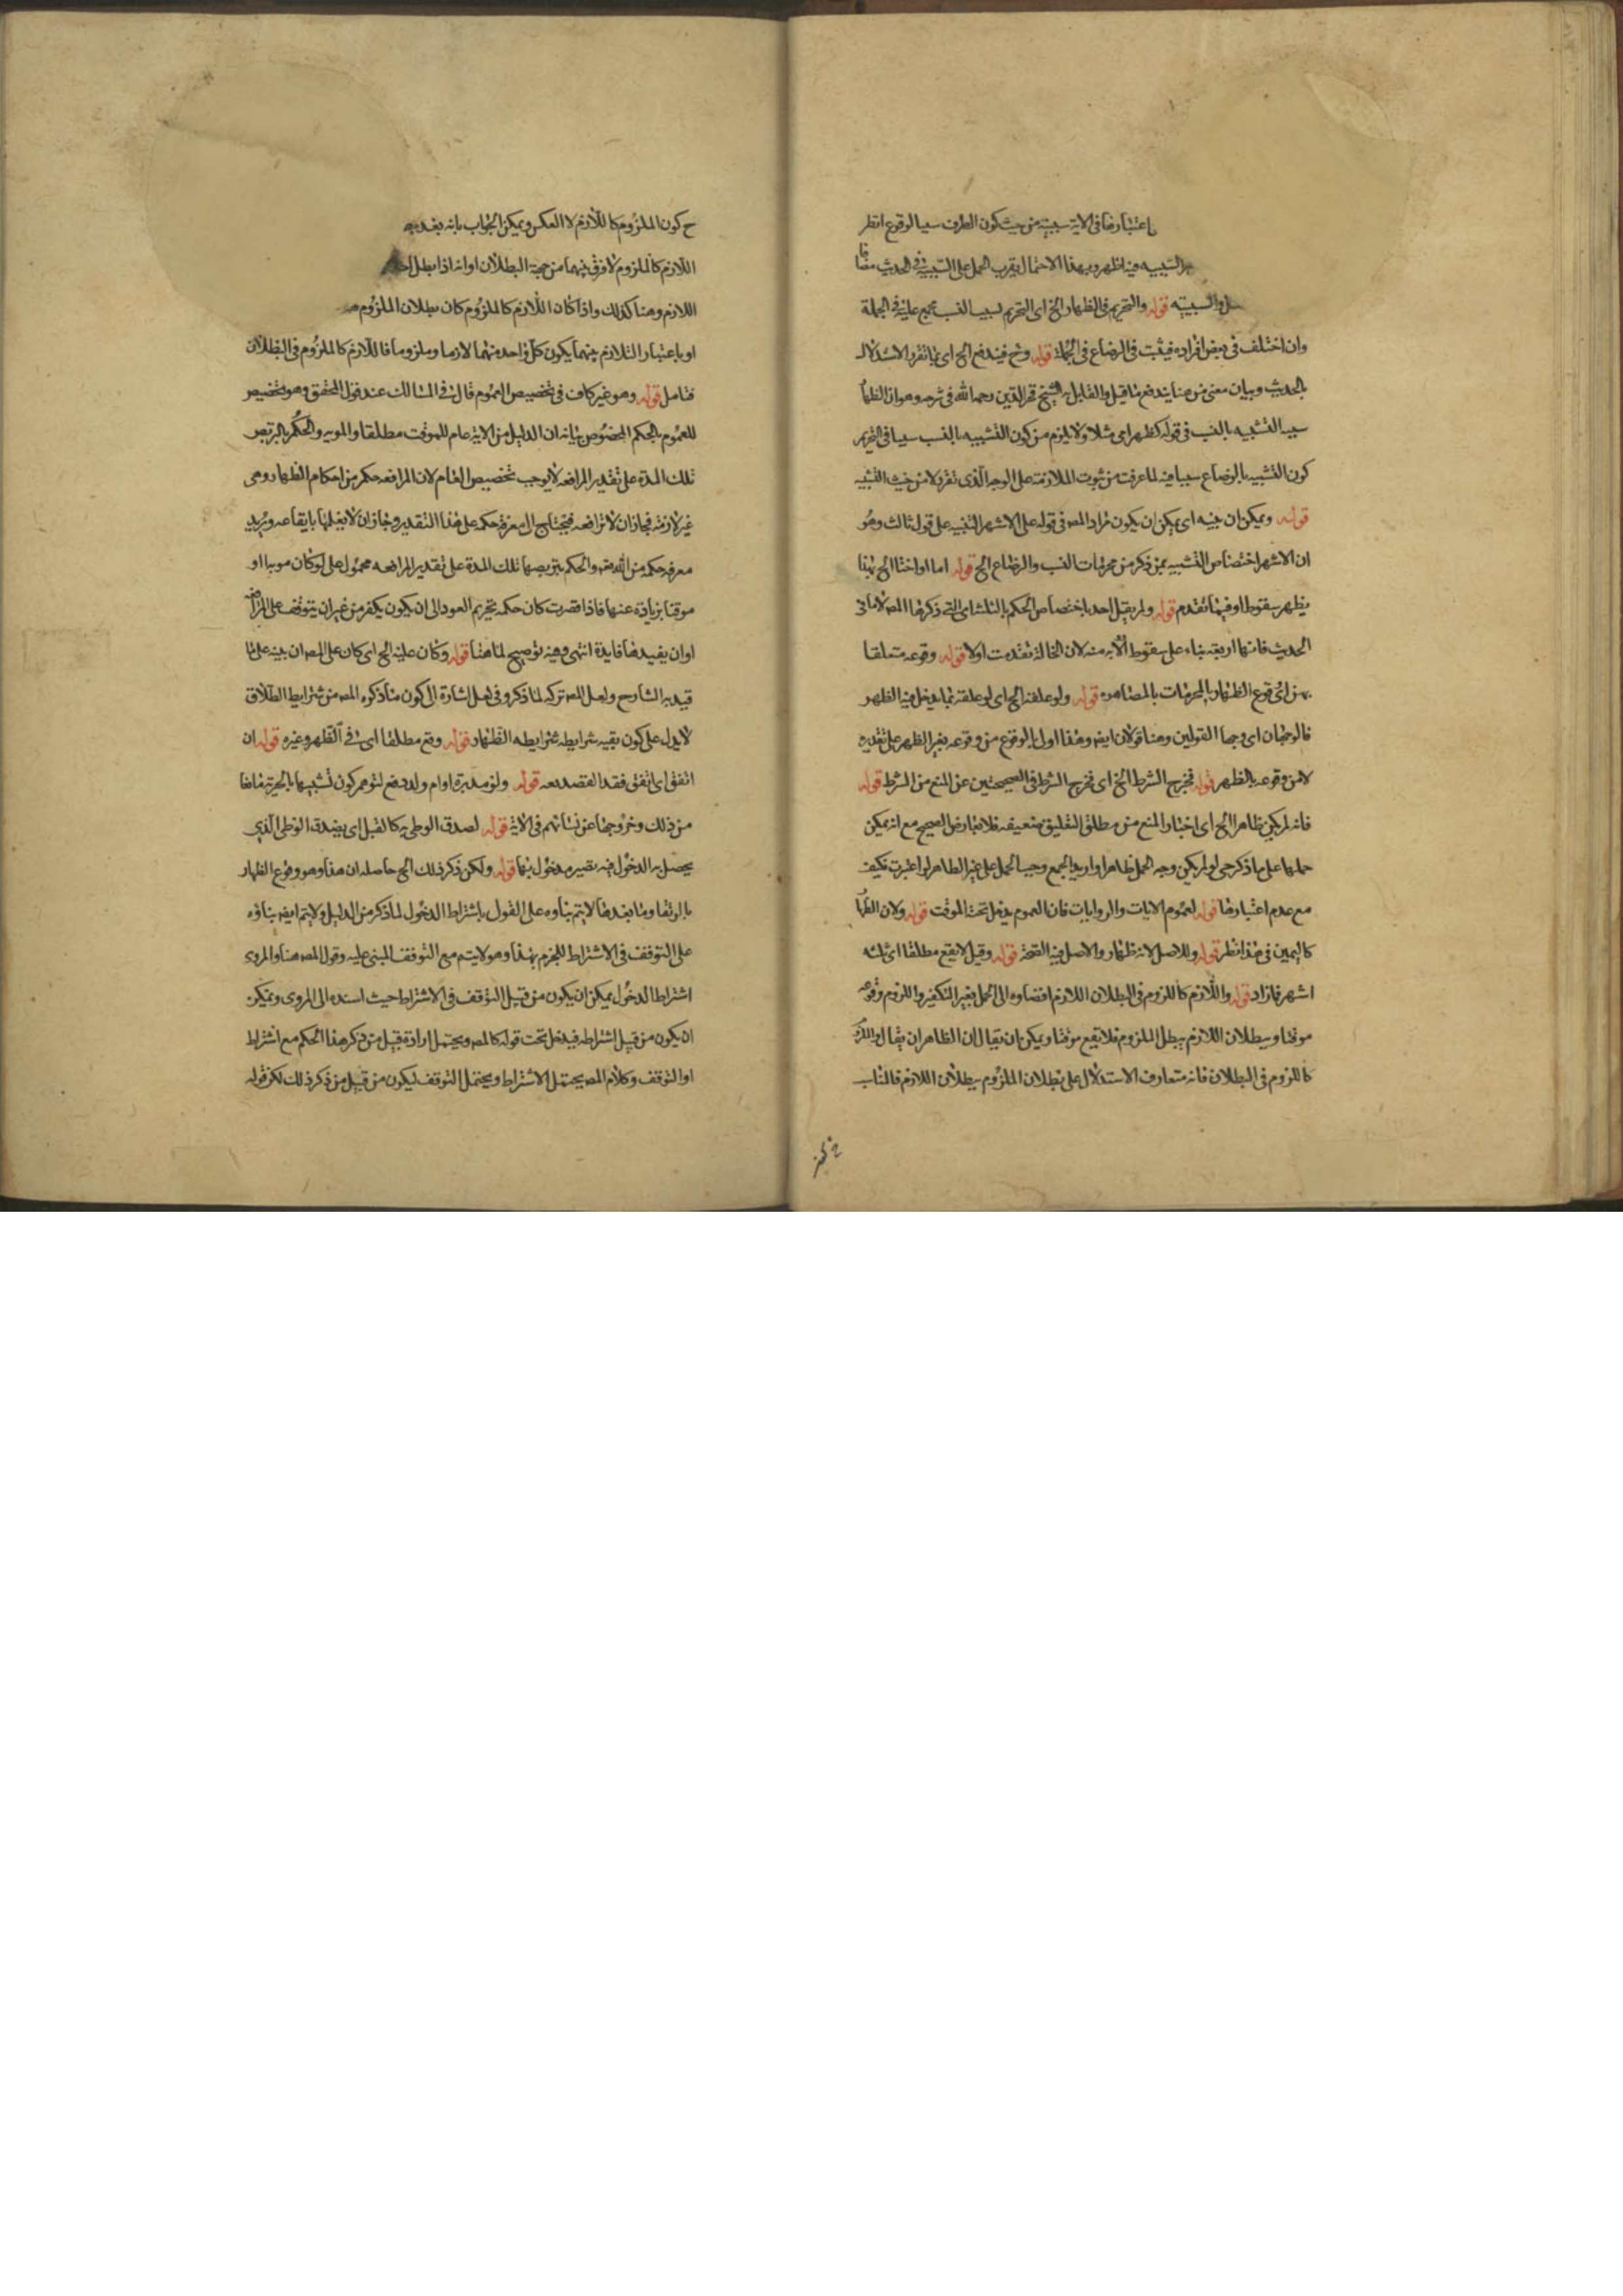 باعتبارها فى الاية سببية من حيث كون الطرف سببا لوقوع انظر
التشبيه فيه اظهر وبهذا الاحتمال يقرب الحمل على السببية فى الحديث مضافا
والسببيته قوله والتحريم فى الظهار الخ اى التحريم لسبب النسب مجمع عليه فى الجملة
وان اختلف فى بعض افراده فيثبت فى الرضاع فى الجملة قوله وح فيندفع الخ اى بما تقرر الاستدلال
بالحديث وبيان معنى من هنا يندفع ما قيل والقايل به الشيخ فخر الدين رحمه الله فى شرحه وهو ان الظهار
سببه التشبيه بالنسب فى قوله كظهر امى مثلا ولا يلزم من كون التشبيه بالنسب سببا فى التحريم
كون التشبيه بالرضاع سببا فيه لما عرفت من ثبوت الملازمة على الوجه الذى تقرر لا من حيث التشبيه
قوله ويمكن ان ينبه اى يمكن ان يكون مراد المص فى قوله على الاشهر التنبيه على قول ثالث وهو
ان الاشهر اختصاص التشبيه بمن ذكر من محرمات النسب والرضاع الخ قوله اما او اختا الخ بهذا
يظهر سقوط او فيما تقدم قوله ولم يقبل احد باختصاص الحكم بالثلث اى التى ذكرها المص لا ما فى
الحديث فانها اربعة بناء على سقوط الابه منه لان الخالة تقدمت اولا قوله وقوعه متعلقا
بهن اى وقوع الظهار بالمحرمات بالمصاهره قوله ولو علقه الخ اى لو علقه بما يدخل فيه الظهر
فالوجهان اى وجها القولين وهنا قولان ايضا وهذا اولى بالوقوع من وقوعه بغير الظهر على تقديره
لا من وقوعه بالظهر قوله فخرج الشرط الخ اى فخرج الشرط فى الصحيحتين عن المنع من الشرط قوله
فانه لم يكن ظاهرا الخ اى اخبار المنع من مطلق التعليق ضعيفه فلا تعارض الصحيح مع انه يمكن
حملها على ما ذكر حتى لو لم يكن وجه الحمل ظاهرا واريد الجمع وجب الحمل على غير الظاهر لو اعتبرت فكيف
مع عدم اعتبارها قوله لعموم الايات والروايات فان العموم يدخل تحته الموقت قوله ولان الظهار
كاليمين فى هذا نظر قوله وللاصل لانه ظهار والاصل فيه الصحة قوله وقيل لا يقع مطلقا اى ثلثه
اشهر فازاد قوله واللازم كاللزوم فى البطلان اللازم افضاوه الى الحمل بغير التكفير واللزوم وقوعه
موقتا وببطلان اللازم يبطل الملزوم فلا يقع موقتا ويمكن ان يقال ان الظاهر ان يقال واللازم
كاللزوم فى البطلان فانه متعارف الاستدلال على بطلان الملزوم ببطلان اللازم فالناسب
ح كون الملزوم كاللازم لا العكس ويمكن الجواب بانه بعد
اللازم كالملزوم لا فرق بينهما من جهة البطلان او انه اذا بطل احد
اللازم وهنا كذلك واذا كان اللازم كالملزوم كان بطلان الملزوم
او باعتبار التلازم بينهما يكون كل واحد منهما لازما وملزوما فاللازم كالملزوم فى البطلان
فتامل قوله وهو غير كاف فى تخصيص العموم قال فى المسالك عند قول المحقق وهو تخصيص
للعموم بالحكم المخصوص بيانه ان الدليل من الاية عام للموقت مطلقا والموبد والحكم بالتربص
تلك المدة على تقدير المرافعه لا يوجب تخصيص العام لان المرافعه حكم من احكام الظهار وهى
غير لازمه فجاز ان لا ترافعه فتحتاج الى معرفة حكمه على هذا التقدير وجاز ان لا يعلمها بايقاعه ويريد
معرفة حكمه من الله تعم والحكم بتربصها تلك المدة على تقدير المرافعه محمول على لو كان موبدا او
موقتا بزيادة عنها فاذا قصرت كان حكمه تحريم العود الى ان يكون يكفر من غير ان يتوقف على المرافعه
او ان يفيدها فايدة انتهى وفيه توضيح لما هنا قوله وكان عليه الخ اى كان على المص ان ينبه على ما
قيد به الشارح ولعل المص تركه لما ذكر وفى لعل اشارة الى كون ما ذكره المص من شرايط الطلاق
لا يدل على كون بقيه شرايطه شرايطه الظهار قوله وقع مطلقا اى فى الظهر وغيره قوله ان
اتفق اى اتفق فقد القصد معه قوله ولو مدبرة او ام ولد دفع لتوهم كون تشبيهها بالحرية مانعا
من ذلك وخروجها عن نسائهم فى الاية قوله لصدق الوطى به كالقبل اى يصدق الوطى الذى
يحصل به الدخول فيه بصيره مدخول بها قوله ولكن ذكر ذلك الخ حاصله ان هذا وهو وقوع الظهار
بالرتقا وما بعدها لا يتم بناوه على القول باشتراط الدخول لما ذكر من الدليل ولا يتم ايضا بناؤه
على التوقف فى الاشتراط للجزم بهذا وهو لا يتم مع التوقف المبنى عليه وقول المص هنا والمروى
اشتراط الدخول يمكن ان يكون من قبيل التوقف فى الاشتراط حيث اسنده الى المروى ويمكن
ان يكون من قبيل اشتراطه فيدخل تحت قوله كالمص ويحتمل ارادة قبيل من ذكر هذا الحكم مع اشتراط
او التوقف وكلام المص يحتمل الاشتراط ويحتمل التوقف ليكون من قبيل من ذكر ذلك لكن قوله